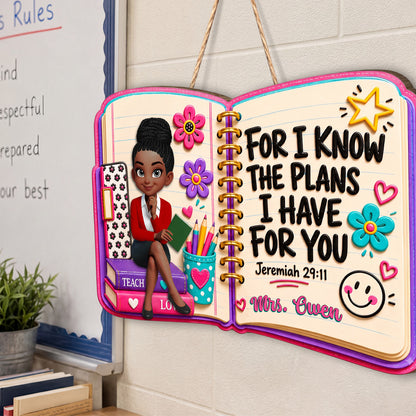 s Rules
ind
espectful
repared
our best
TEACH
LO
FOR I KNOW
THE PLANS
I HAVE
FOR YOU
Jeremiah 29:11
Mrs. Owen